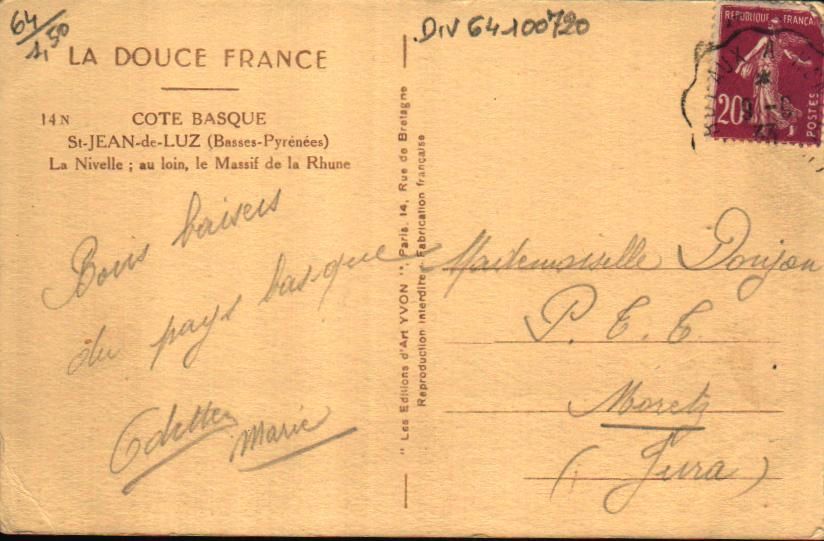 64
1,50
DIV 64100720
LA DOUCE FRANCE
14 N COTE BASQUE
St-JEAN-de-LUZ (Basses-Pyrénées)
La Nivelle ; au loin, le Massif de la Rhune
Bons baisers
du pays basque
Odette
Marie
" Les Editions d'Art YVON ". Paris, 14, Rue de Bretagne
Reproduction interdite. Fabrication française
REPUBLIQUE FRANÇAI
20
POSTES
Mademoiselle Donjon
P. T. T.
Morez
(Jura)